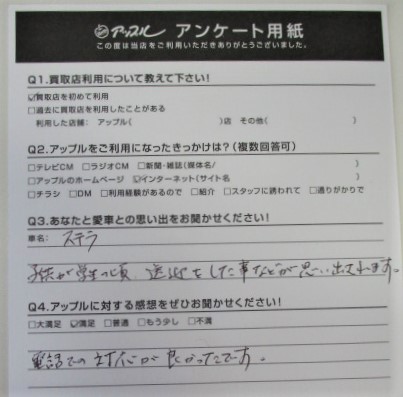 アップル アンケート用紙
この度は当店をご利用いただきありがとうございました。
Q1.買取店利用について教えて下さい!
☑買取店を初めて利用
□過去に買取店を利用したことがある
利用した店舗: アップル( )店 その他( )
Q2.アップルをご利用になったきっかけは?(複数回答可)
□テレビCM □ラジオCM □新聞・雑誌(媒体名/ )
□アップルのホームページ ☑インターネット(サイト名 )
□チラシ □DM □利用経験があるので □紹介 □スタッフに誘われて □通りがかりで
Q3.あなたと愛車との思い出をお聞かせください!
車名: ステラ
子供が学生の頃、送迎をした事などが思い出されます。
Q4.アップルに対する感想をぜひお聞かせください!
□大満足 ☑満足 □普通 □もう少し □不満
電話での対応が良かったです。